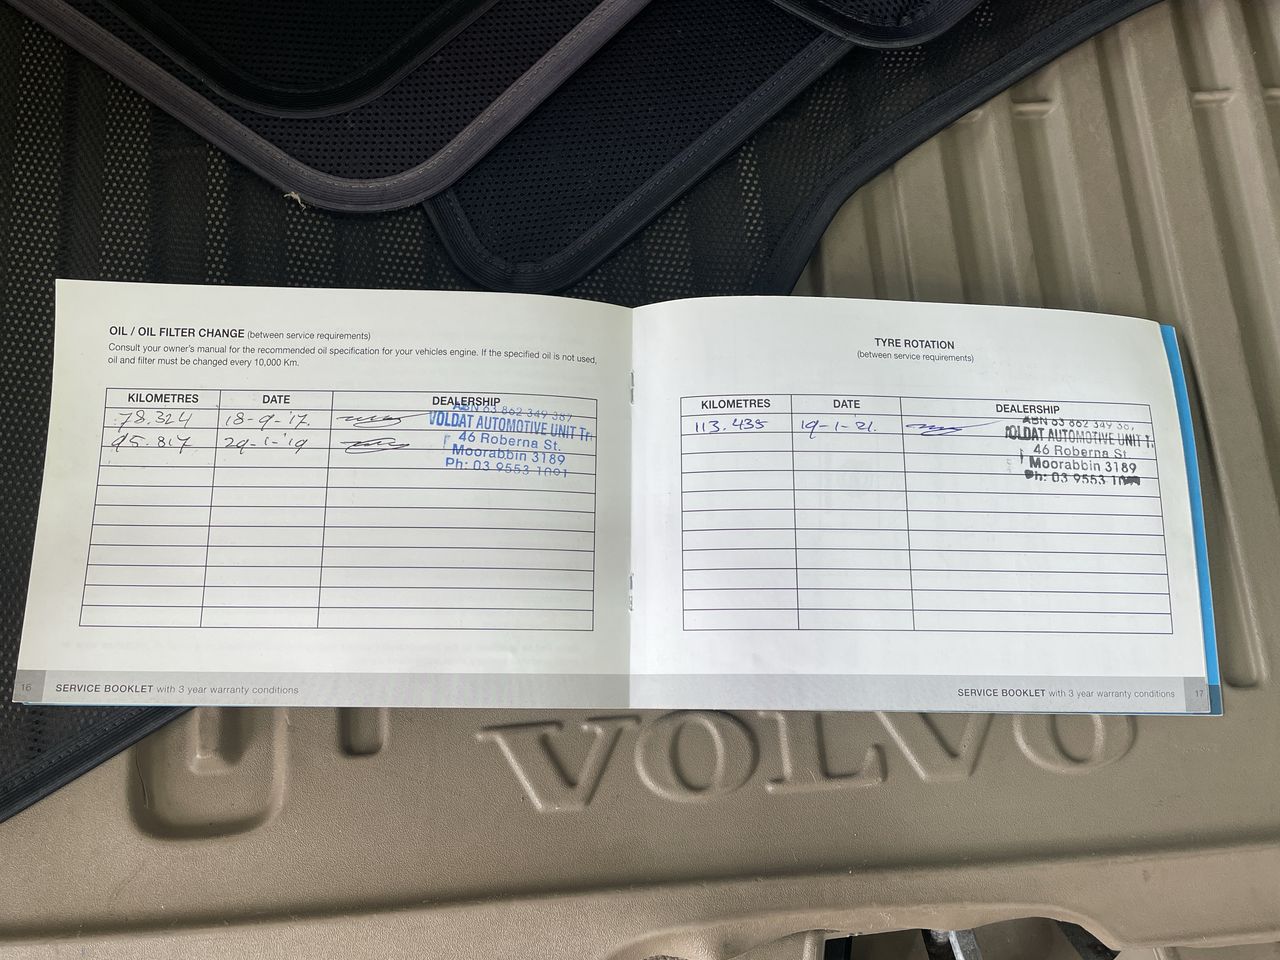 OIL / OIL FILTER CHANGE (between service requirements)
Consult your owner's manual for the recommended oil specification for your vehicles engine. If the specified oil is not used,
oil and filter must be changed every 10,000 Km.
KILOMETRES DATE DEALERSHIP
78.324 18-9-'17.
95.817 29-1-'19
ABN 63 862 349 387
VOLDAT AUTOMOTIVE UNIT Tr
46 Roberna St.
Moorabbin 3189
Ph: 03 9553 1091
16 SERVICE BOOKLET with 3 year warranty conditions
TYRE ROTATION
(between service requirements)
KILOMETRES DATE DEALERSHIP
113.435 19-1-'21.
ABN 63 862 349 38,
OLDAT AUTOMOTIVE UNIT T
46 Roberna St
Moorabbin 3189
Ph: 03 9553
SERVICE BOOKLET with 3 year warranty conditions 17
VOLVO